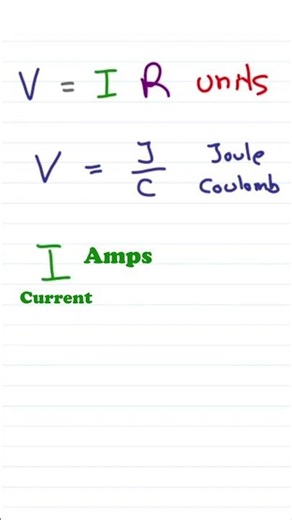 V = I R units
V = J/C Joule Coulomb
I Amps
Current